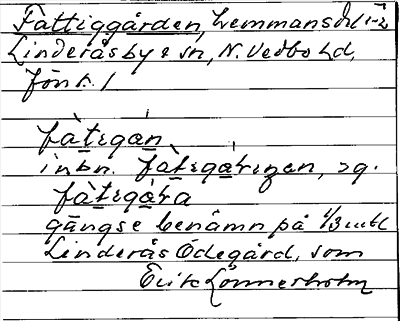 Fattiggården, Lemmansdel 1-2
Linderås by & sn, N. Vedbo hd,
Jönk. l
fàtıgạn
inbn. fàtıgạrıŋan, sg.
fàtıgạra
gängse benämn på 1/3 mtl
Linderås Ödegård, som
Erik Lönnerholm